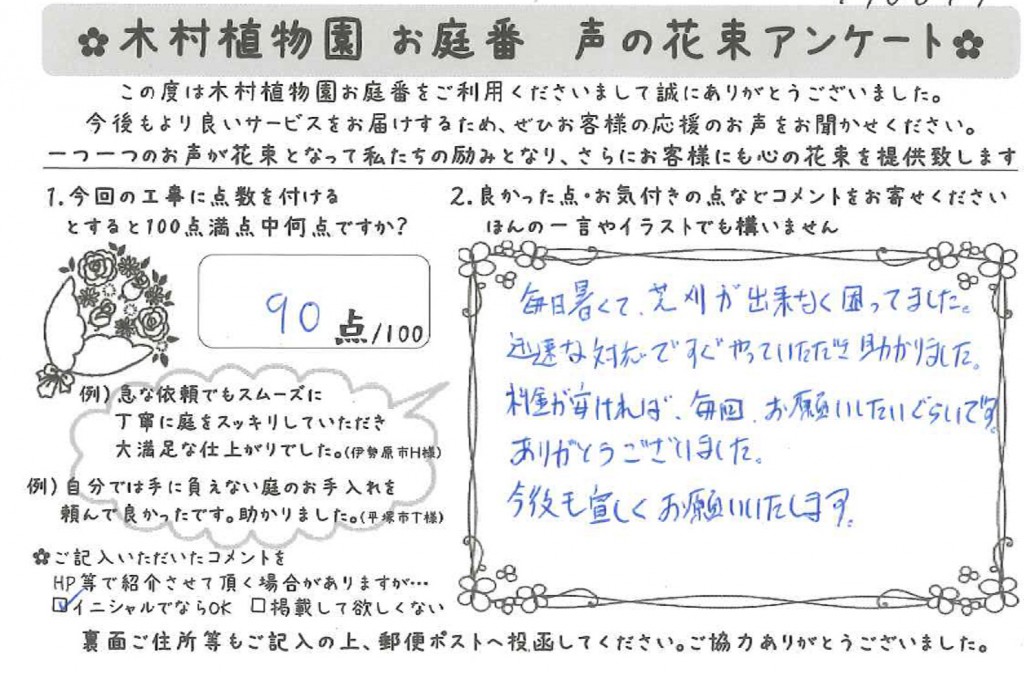 ✿木村植物園 お庭番 声の花束アンケート✿
この度は木村植物園お庭番をご利用くださいまして誠にありがとうございました。
今後もより良いサービスをお届けするため、ぜひお客様の応援のお声をお聞かせください。
一つ一つのお声が花束となって私たちの励みとなり、さらにお客様にも心の花束を提供致します
1.今回の工事に点数を付ける
とすると100点満点中何点ですか?
90点/100
例)急な依頼でもスムーズに
丁寧に庭をスッキリしていただき
大満足な仕上がりでした。(伊勢原市H様)
例)自分では手に負えない庭のお手入れを
頼んで良かったです。助かりました。(平塚市T様)
✿ご記入いただいたコメントを
HP等で紹介させて頂く場合がありますが…
☑イニシャルでならOK □掲載して欲しくない
2.良かった点・お気付きの点などコメントをお寄せください
ほんの一言やイラストでも構いません
毎日暑くて、芝刈が出来なく困ってました。
迅速な対応ですぐやっていただき助かりました。
料金が安ければ、毎回、お願いしたいぐらいです。
ありがとうございました。
今後も宜しくお願いいたします。
裏面ご住所等もご記入の上、郵便ポストへ投函してください。ご協力ありがとうございました。